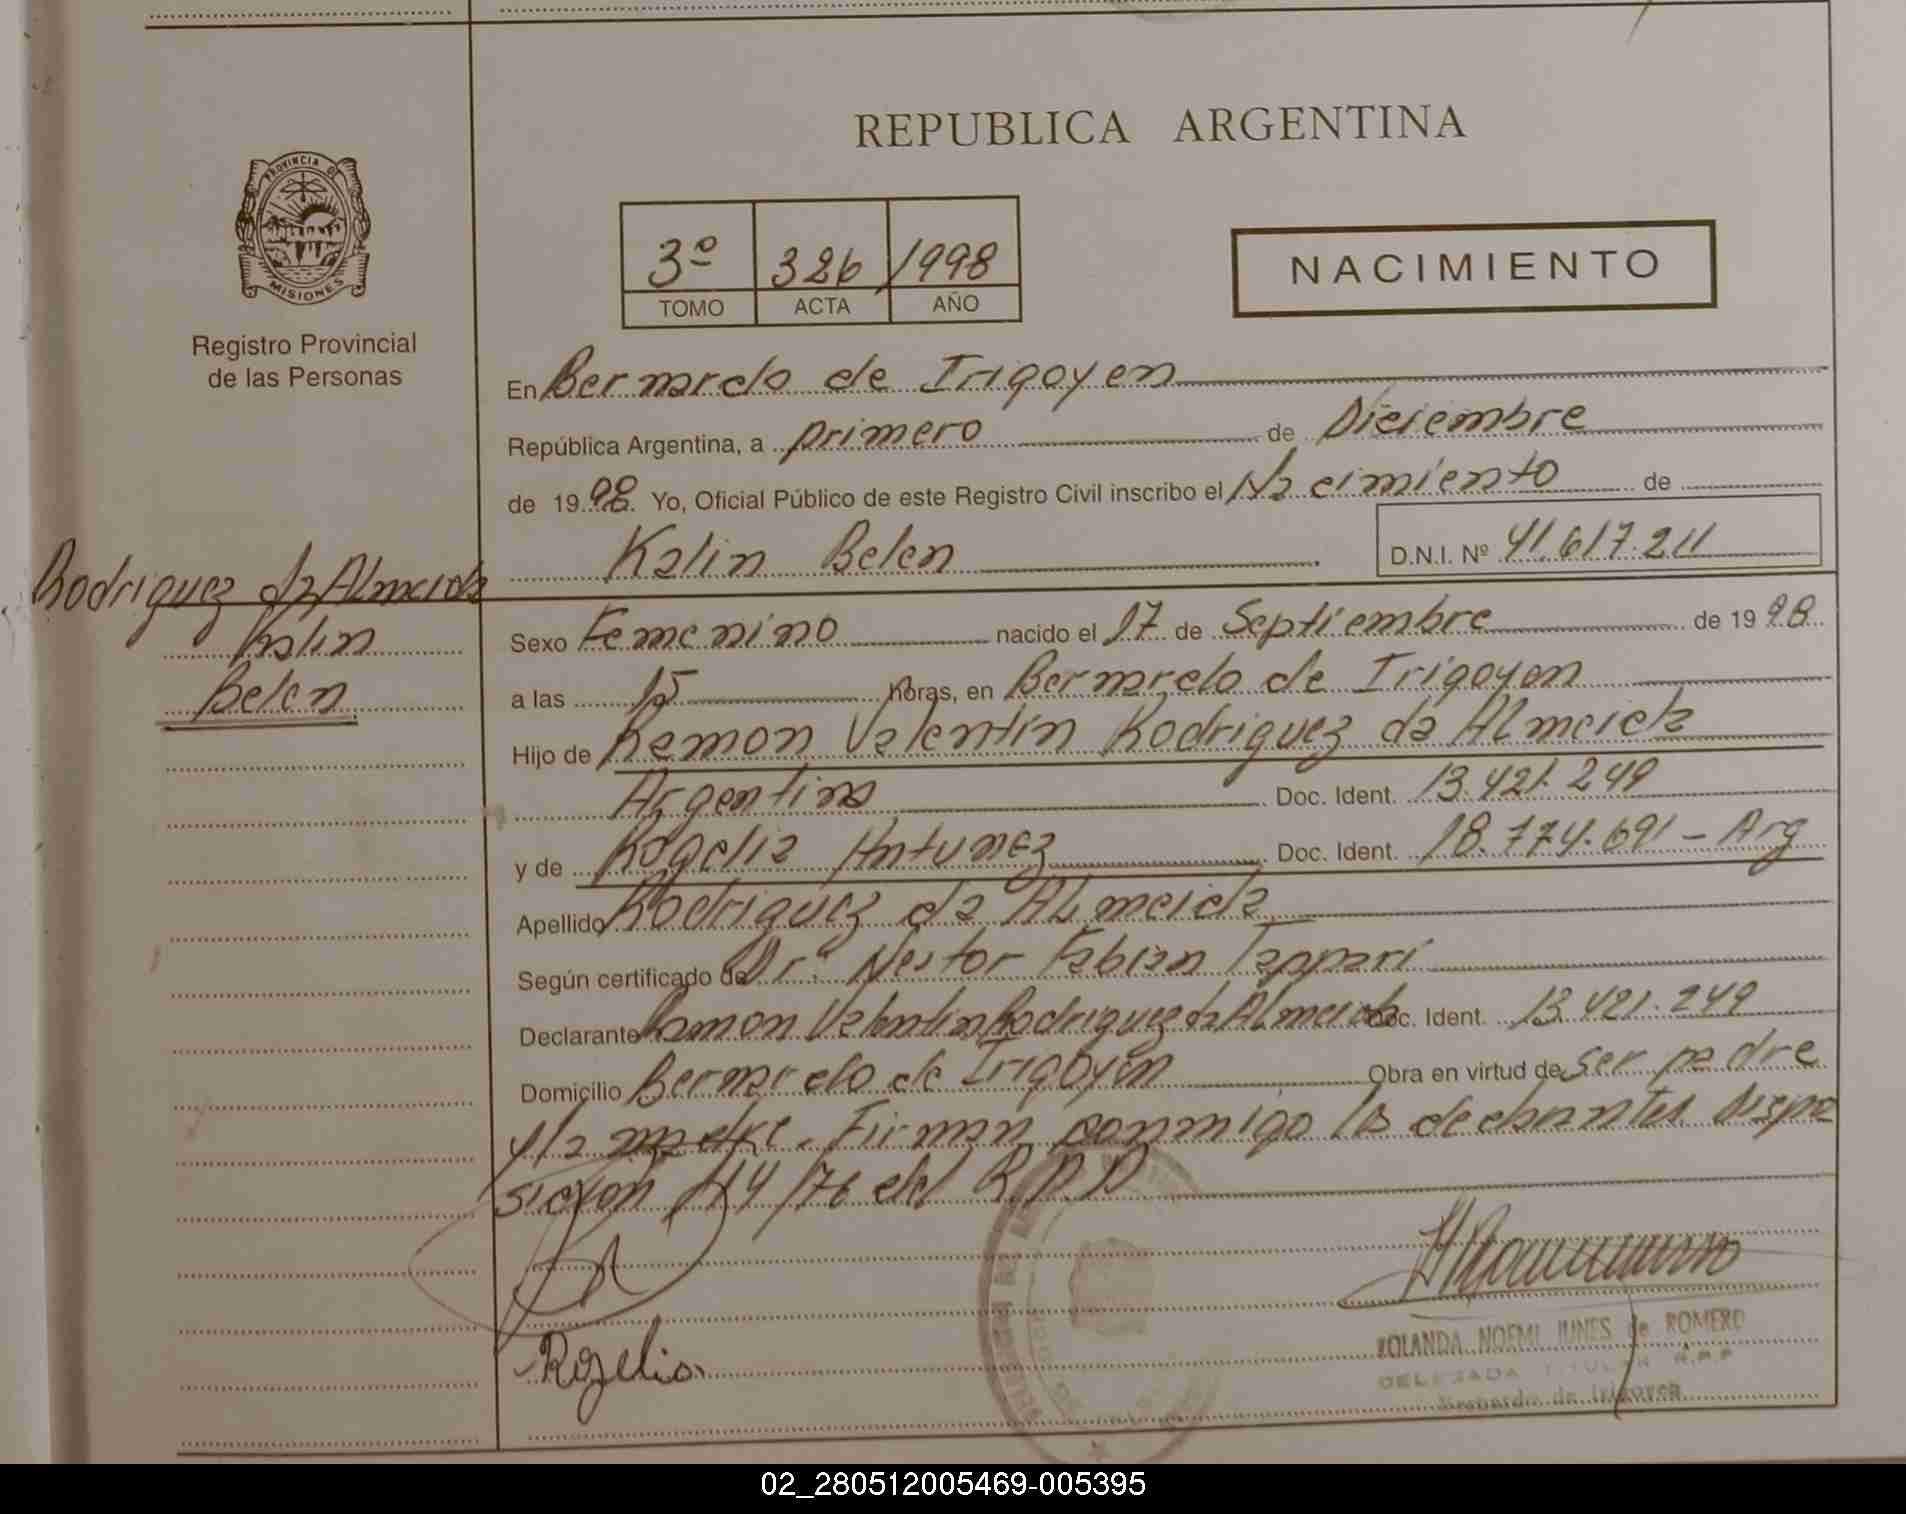 REPUBLICA ARGENTINA
PROVINCIA DE
MISIONES
Registro Provincial
de las Personas
3º 326 1998
TOMO ACTA AÑO
NACIMIENTO
En Bernardo de Irigoyen
República Argentina, a primero de Diciembre
de 1998. Yo, Oficial Público de este Registro Civil inscribo el Nacimiento de
Kalin Belen D.N.I. Nº 41.617.211
Rodriguez da Almeida
Kalin
Belen
Sexo Femenino nacido el 17 de Septiembre de 1998
a las 15 horas, en Bernardo de Irigoyen
Hijo de Ramon Valentin Rodriguez da Almeida
Argentina Doc. Ident. 13.421.249
y de Rogelia Antunez Doc. Ident. 18.774.691 - Arg
Apellido Rodriguez da Almeida
Según certificado de Dr. Nestor Fabian Tappari
Declarante Ramon Valentin Rodriguez da Almeida Doc. Ident. 13.421.249
Domicilio Bernardo de Irigoyen Obra en virtud de ser padre
y la madre. Firman conmigo los declarantes Dispo
sicion 114/76 del R.P.P
Rogelia
YOLANDA NOEMI JUNES de ROMERO
DELEGADA TITULAR R.P.P
Bernardo de Irigoyen
02_280512005469-005395